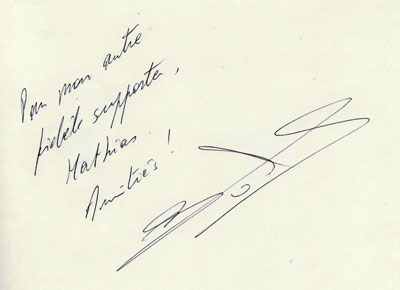 Pour mon autre
fidèle supporter,
Mathias.
Amitiés !